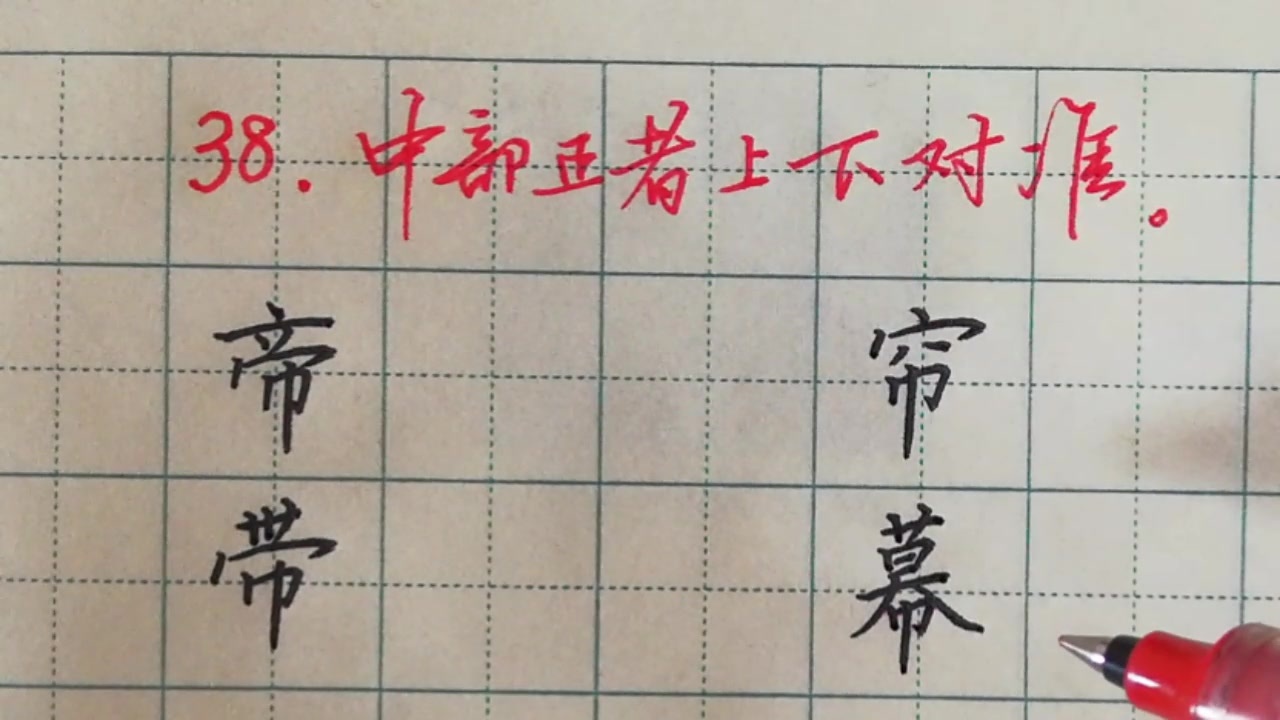 38.中部正者上下对准。
帝 帘
带 幕